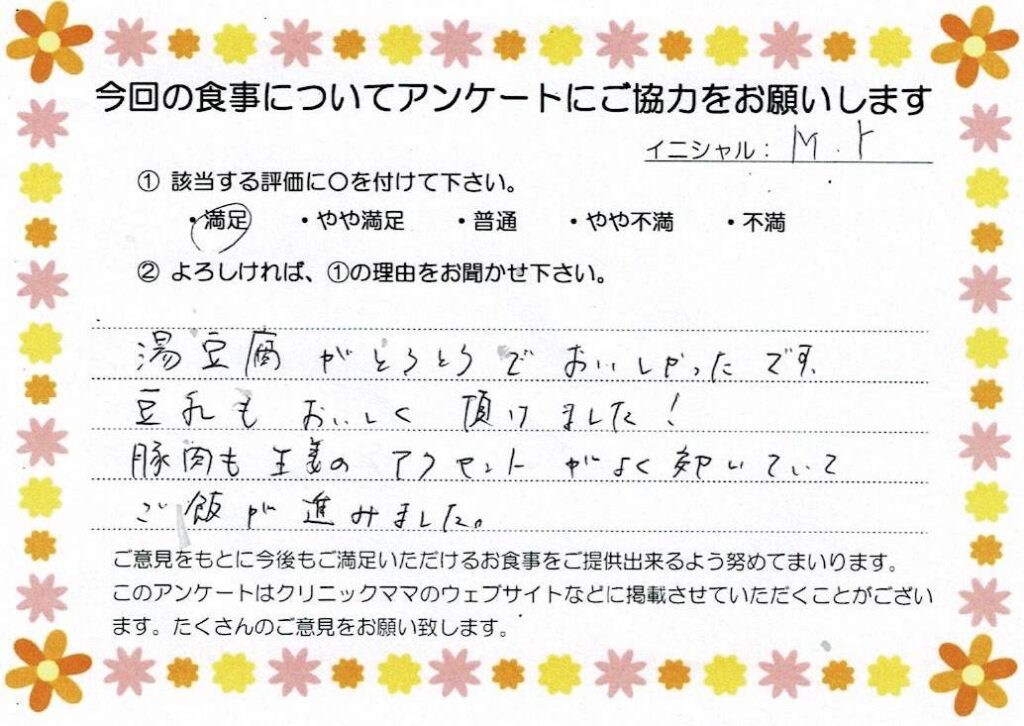 今回の食事についてアンケートにご協力をお願いします
イニシャル： M.Y
① 該当する評価に〇を付けて下さい。
・満足 ・やや満足 ・普通 ・やや不満 ・不満
② よろしければ、①の理由をお聞かせ下さい。
湯豆腐がとろとろでおいしかったです。
豆乳もおいしく頂けました！
豚肉も生姜のアクセントがよく効いていて
ご飯が進みました。
ご意見をもとに今後もご満足いただけるお食事をご提供出来るよう努めてまいります。
このアンケートはクリニックママのウェブサイトなどに掲載させていただくことがござい
ます。たくさんのご意見をお願い致します。